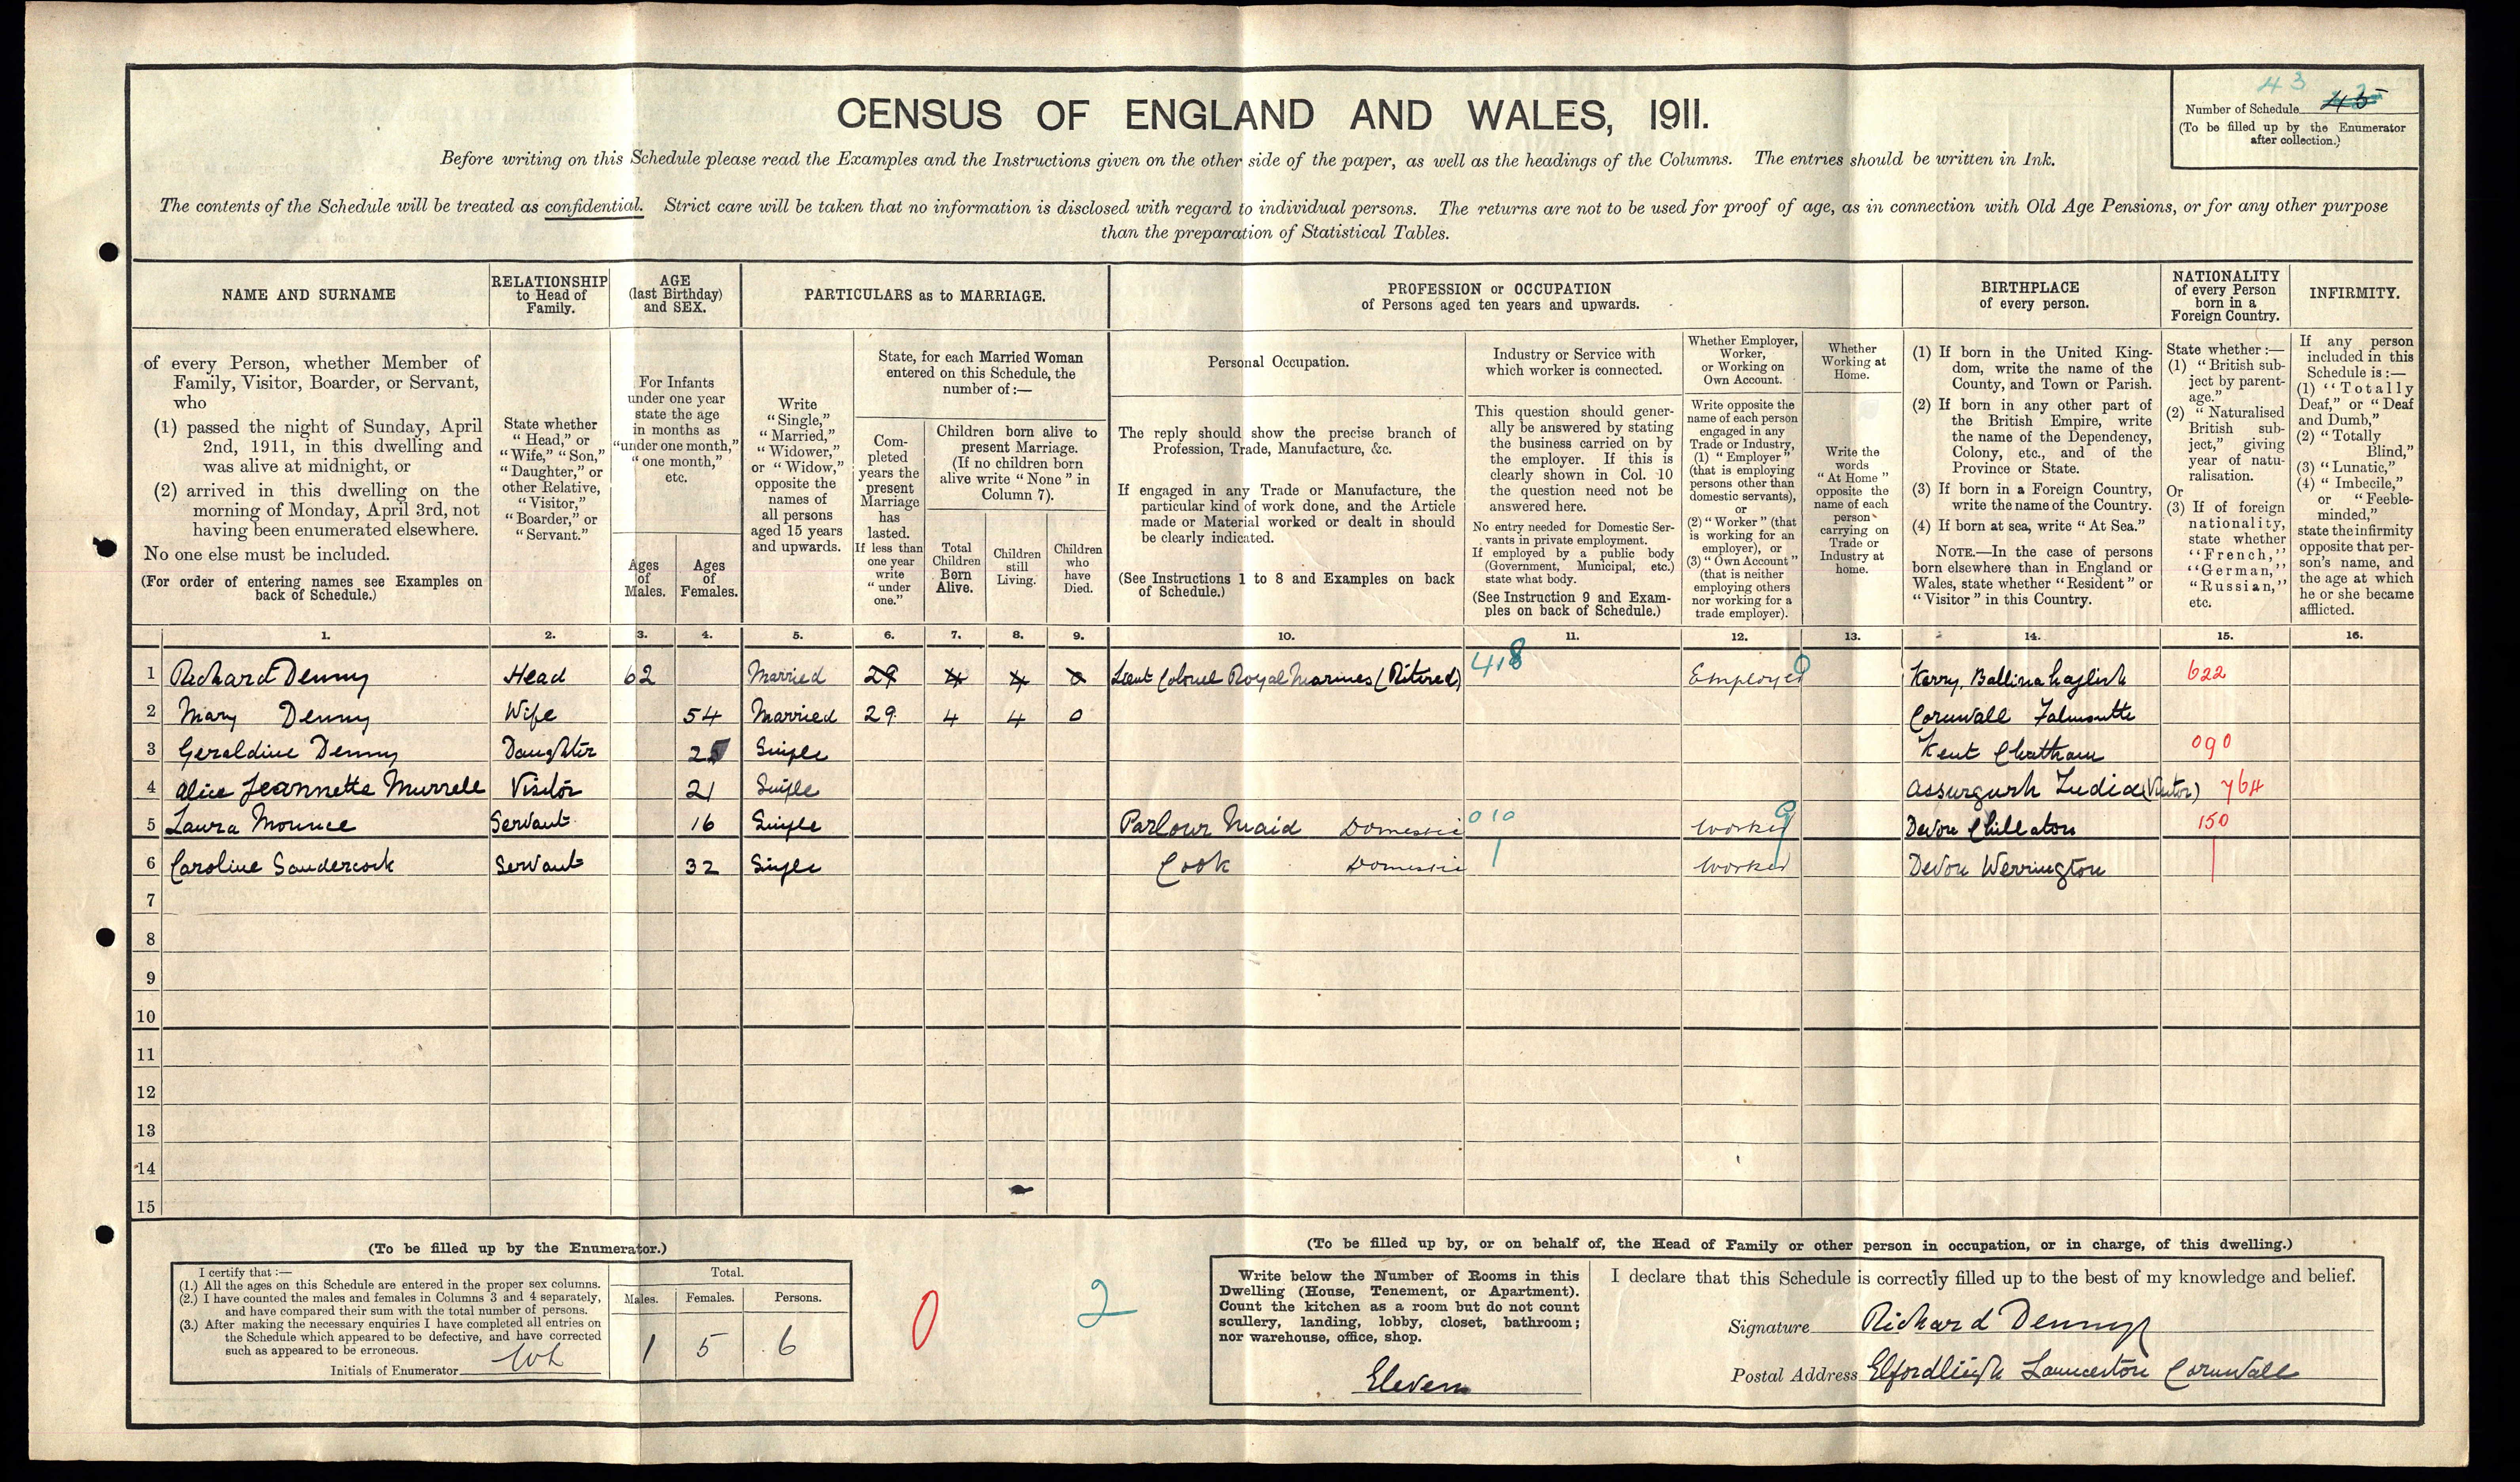 CENSUS OF ENGLAND AND WALES, 1911.
43
Number of Schedule 45
(To be filled up by the Enumerator
after collection.)
Before writing on this Schedule please read the Examples and the Instructions given on the other side of the paper, as well as the headings of the Columns. The entries should be written in Ink.
The contents of the Schedule will be treated as confidential. Strict care will be taken that no information is disclosed with regard to individual persons. The returns are not to be used for proof of age, as in connection with Old Age Pensions, or for any other purpose
than the preparation of Statistical Tables.
NAME AND SURNAME
of every Person, whether Member of
Family, Visitor, Boarder, or Servant,
who
(1) passed the night of Sunday, April
2nd, 1911, in this dwelling and
was alive at midnight, or
(2) arrived in this dwelling on the
morning of Monday, April 3rd, not
having been enumerated elsewhere.
No one else must be included.
(For order of entering names see Examples on
back of Schedule.)
RELATIONSHIP
to Head of
Family.
State whether
"Head," or
"Wife," "Son,"
"Daughter," or
other Relative,
"Visitor,"
"Boarder," or
"Servant."
AGE
(last Birthday)
and SEX.
For Infants
under one year
state the age
in months as
"under one month,"
"one month,"
etc.
Ages
of
Males.
Ages
of
Females.
PARTICULARS as to MARRIAGE.
Write
"Single,"
"Married,"
"Widower,"
or "Widow,"
opposite the
names of
all persons
aged 15 years
and upwards.
State, for each Married Woman
entered on this Schedule, the
number of:—
Com-
pleted
years the
present
Marriage
has
lasted.
If less than
one year
write
"under
one."
Children born alive to
present Marriage.
(If no children born
alive write "None" in
Column 7).
Total
Children
Born
Alive.
Children
still
Living.
Children
who
have
Died.
PROFESSION or OCCUPATION
of Persons aged ten years and upwards.
Personal Occupation.
The reply should show the precise branch of
Profession, Trade, Manufacture, &c.
If engaged in any Trade or Manufacture, the
particular kind of work done, and the Article
made or Material worked or dealt in should
be clearly indicated.
(See Instructions 1 to 8 and Examples on back
of Schedule.)
Industry or Service with
which worker is connected.
This question should gener-
ally be answered by stating
the business carried on by
the employer. If this is
clearly shown in Col. 10
the question need not be
answered here.
No entry needed for Domestic Ser-
vants in private employment.
If employed by a public body
(Government, Municipal, etc.)
state what body.
(See Instruction 9 and Exam-
ples on back of Schedule.)
Whether Employer,
Worker,
or Working on
Own Account.
Write opposite the
name of each person
engaged in any
Trade or Industry,
(1) "Employer"
(that is employing
persons other than
domestic servants),
or
(2) "Worker" (that
is working for an
employer), or
(3) "Own Account"
(that is neither
employing others
nor working for a
trade employer).
Whether
Working at
Home.
Write the
words
"At Home"
opposite the
name of each
person
carrying on
Trade or
Industry at
home.
BIRTHPLACE
of every person.
(1) If born in the United King-
dom, write the name of the
County, and Town or Parish.
(2) If born in any other part of
the British Empire, write
the name of the Dependency,
Colony, etc., and of the
Province or State.
(3) If born in a Foreign Country,
write the name of the Country.
(4) If born at sea, write "At Sea."
NOTE.—In the case of persons
born elsewhere than in England or
Wales, state whether "Resident" or
"Visitor" in this Country.
NATIONALITY
of every Person
born in a
Foreign Country.
State whether:—
(1) "British sub-
ject by parent-
age."
(2) "Naturalised
British sub-
ject," giving
year of natu-
ralisation.
Or
(3) If of foreign
nationality,
state whether
"French,"
"German,"
"Russian,"
etc.
INFIRMITY.
If any person
included in this
Schedule is:—
(1) "Totally
Deaf," or "Deaf
and Dumb,"
(2) "Totally
Blind,"
(3) "Lunatic,"
(4) "Imbecile,"
or "Feeble-
minded,"
state the infirmity
opposite that per-
son's name, and
the age at which
he or she became
afflicted.
1. 2. 3. 4. 5. 6. 7. 8. 9. 10. 11. 12. 13. 14. 15. 16.
1 Richard Denny Head 62 Married 29 4 4 0 Lieut Colonel Royal Marines (Retired) 418 Employed 0 Kerry, 622
2 Mary Denny Wife 54 Married 29 4 4 0 Cornwall Falmouth
3 Geraldine Denny Daughter 25 Single Kent Chatham 090
4 Alice Jeannette Murrell Visitor 21 Single Assurgurh India (Visitor) 764
5 Laura Mounce Servant 16 Single Parlour Maid Domestic 010 Worker 9 Devon Chillaton 150
6 Caroline Sandercock Servant 32 Single Cook Domestic Worker Devon Werrington
7
8
9
10
11
12
13
14
15
(To be filled up by the Enumerator.)
I certify that:—
(1.) All the ages on this Schedule are entered in the proper sex columns.
(2.) I have counted the males and females in Columns 3 and 4 separately,
and have compared their sum with the total number of persons.
(3.) After making the necessary enquiries I have completed all entries on
the Schedule which appeared to be defective, and have corrected
such as appeared to be erroneous.
Initials of Enumerator
Total.
Males. Females. Persons.
1 5 6
0 2
(To be filled up by, or on behalf of, the Head of Family or other person in occupation, or in charge, of this dwelling.)
Write below the Number of Rooms in this
Dwelling (House, Tenement, or Apartment).
Count the kitchen as a room but do not count
scullery, landing, lobby, closet, bathroom;
nor warehouse, office, shop.
Eleven
I declare that this Schedule is correctly filled up to the best of my knowledge and belief.
Signature Richard Denny
Postal Address Elfordleigh Launceston Cornwall